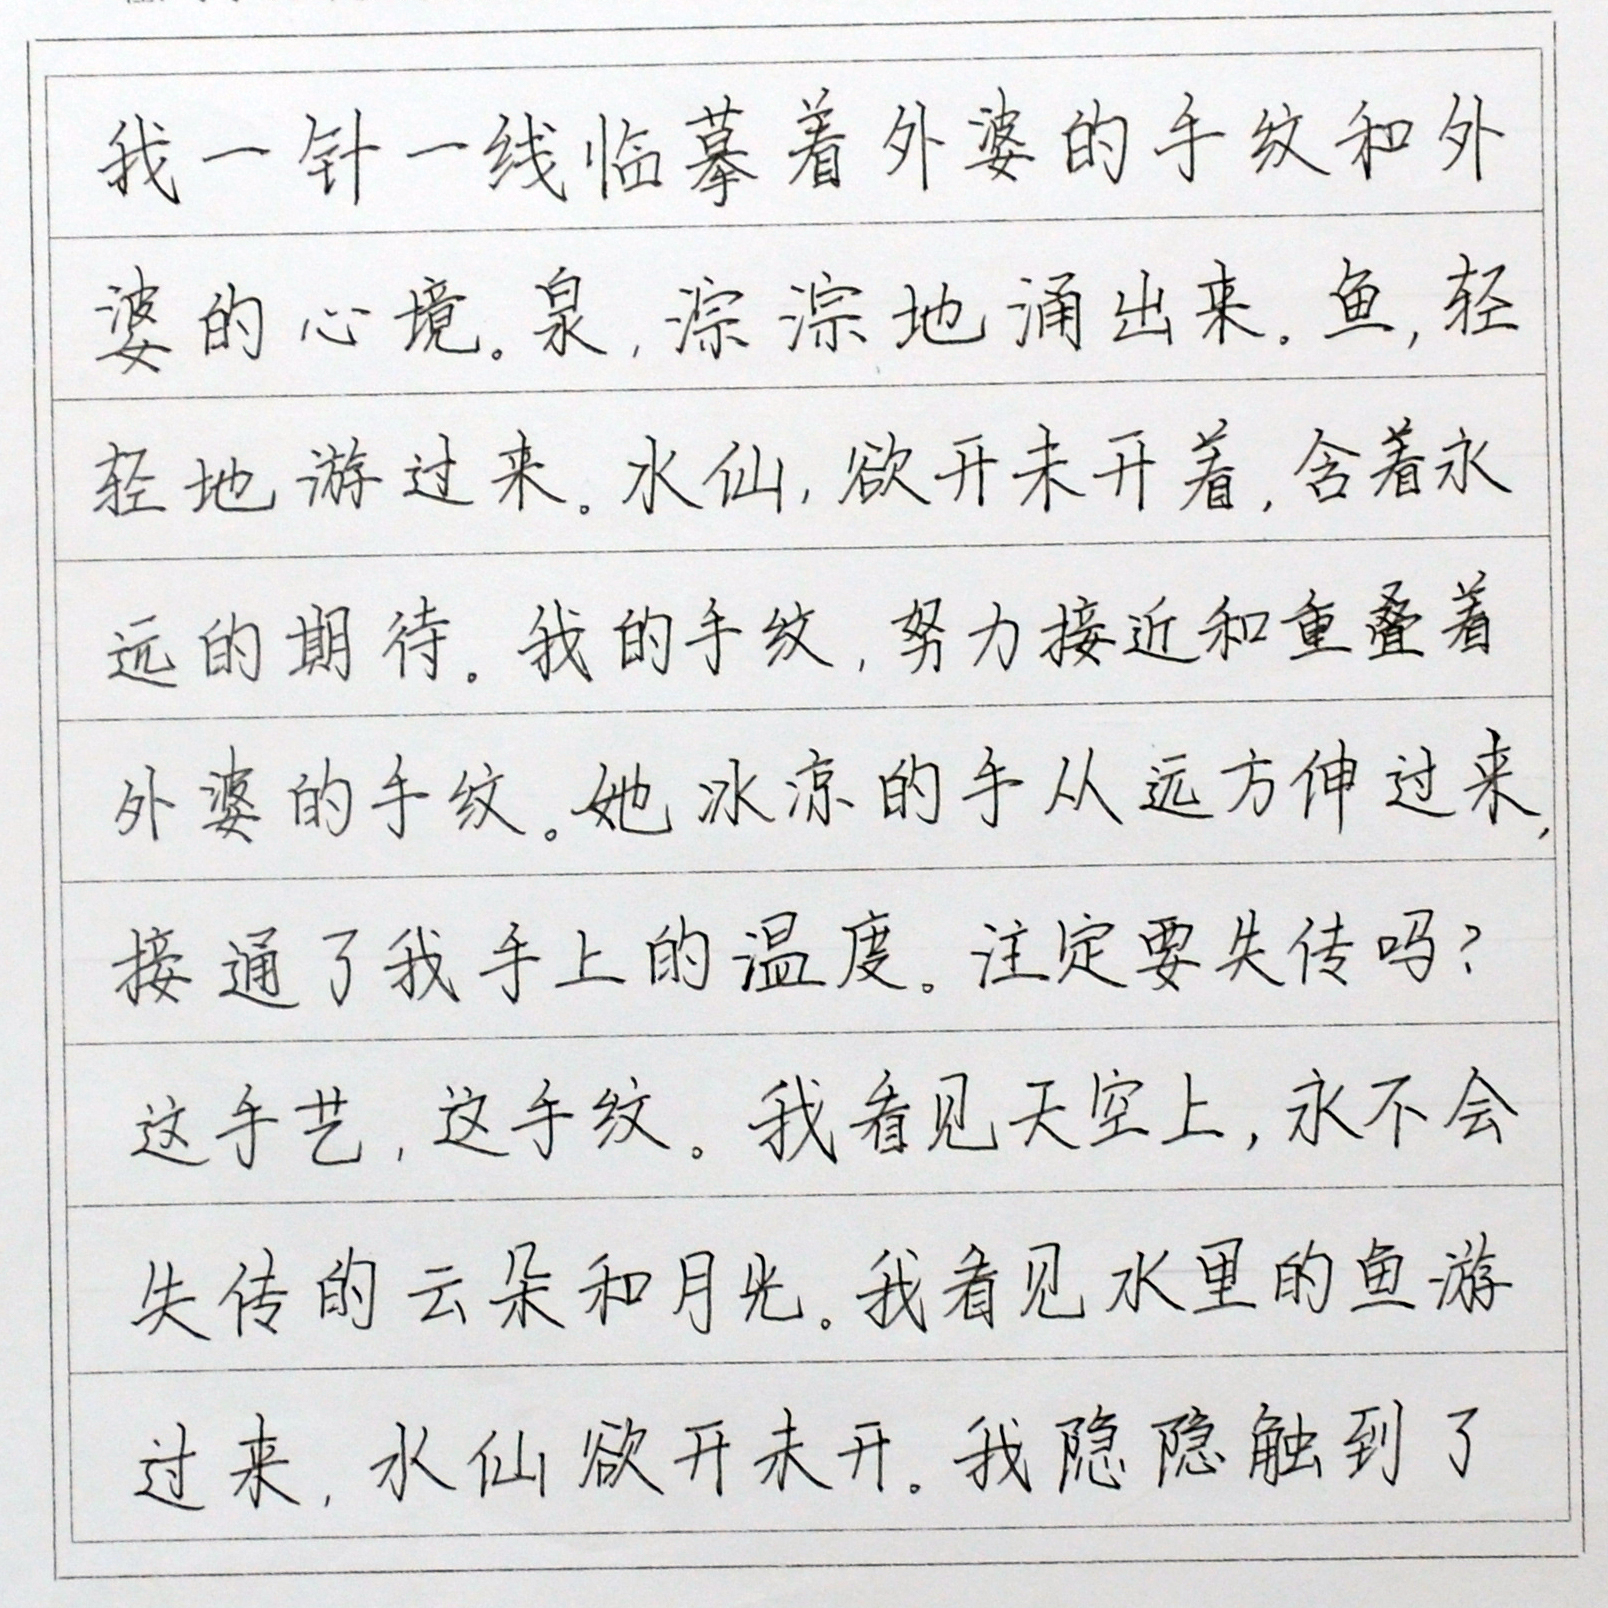 我一针一线临摹着外婆的手纹和外
婆的心境。泉,淙淙地涌出来。鱼,轻
轻地游过来。水仙,欲开未开着,含着永
远的期待。我的手纹,努力接近和重叠着
外婆的手纹。她冰凉的手从远方伸过来,
接通了我手上的温度。注定要失传吗?
这手艺,这手纹。我看见天空上,永不会
失传的云朵和月光。我看见水里的鱼游
过来,水仙欲开未开。我隐隐触到了